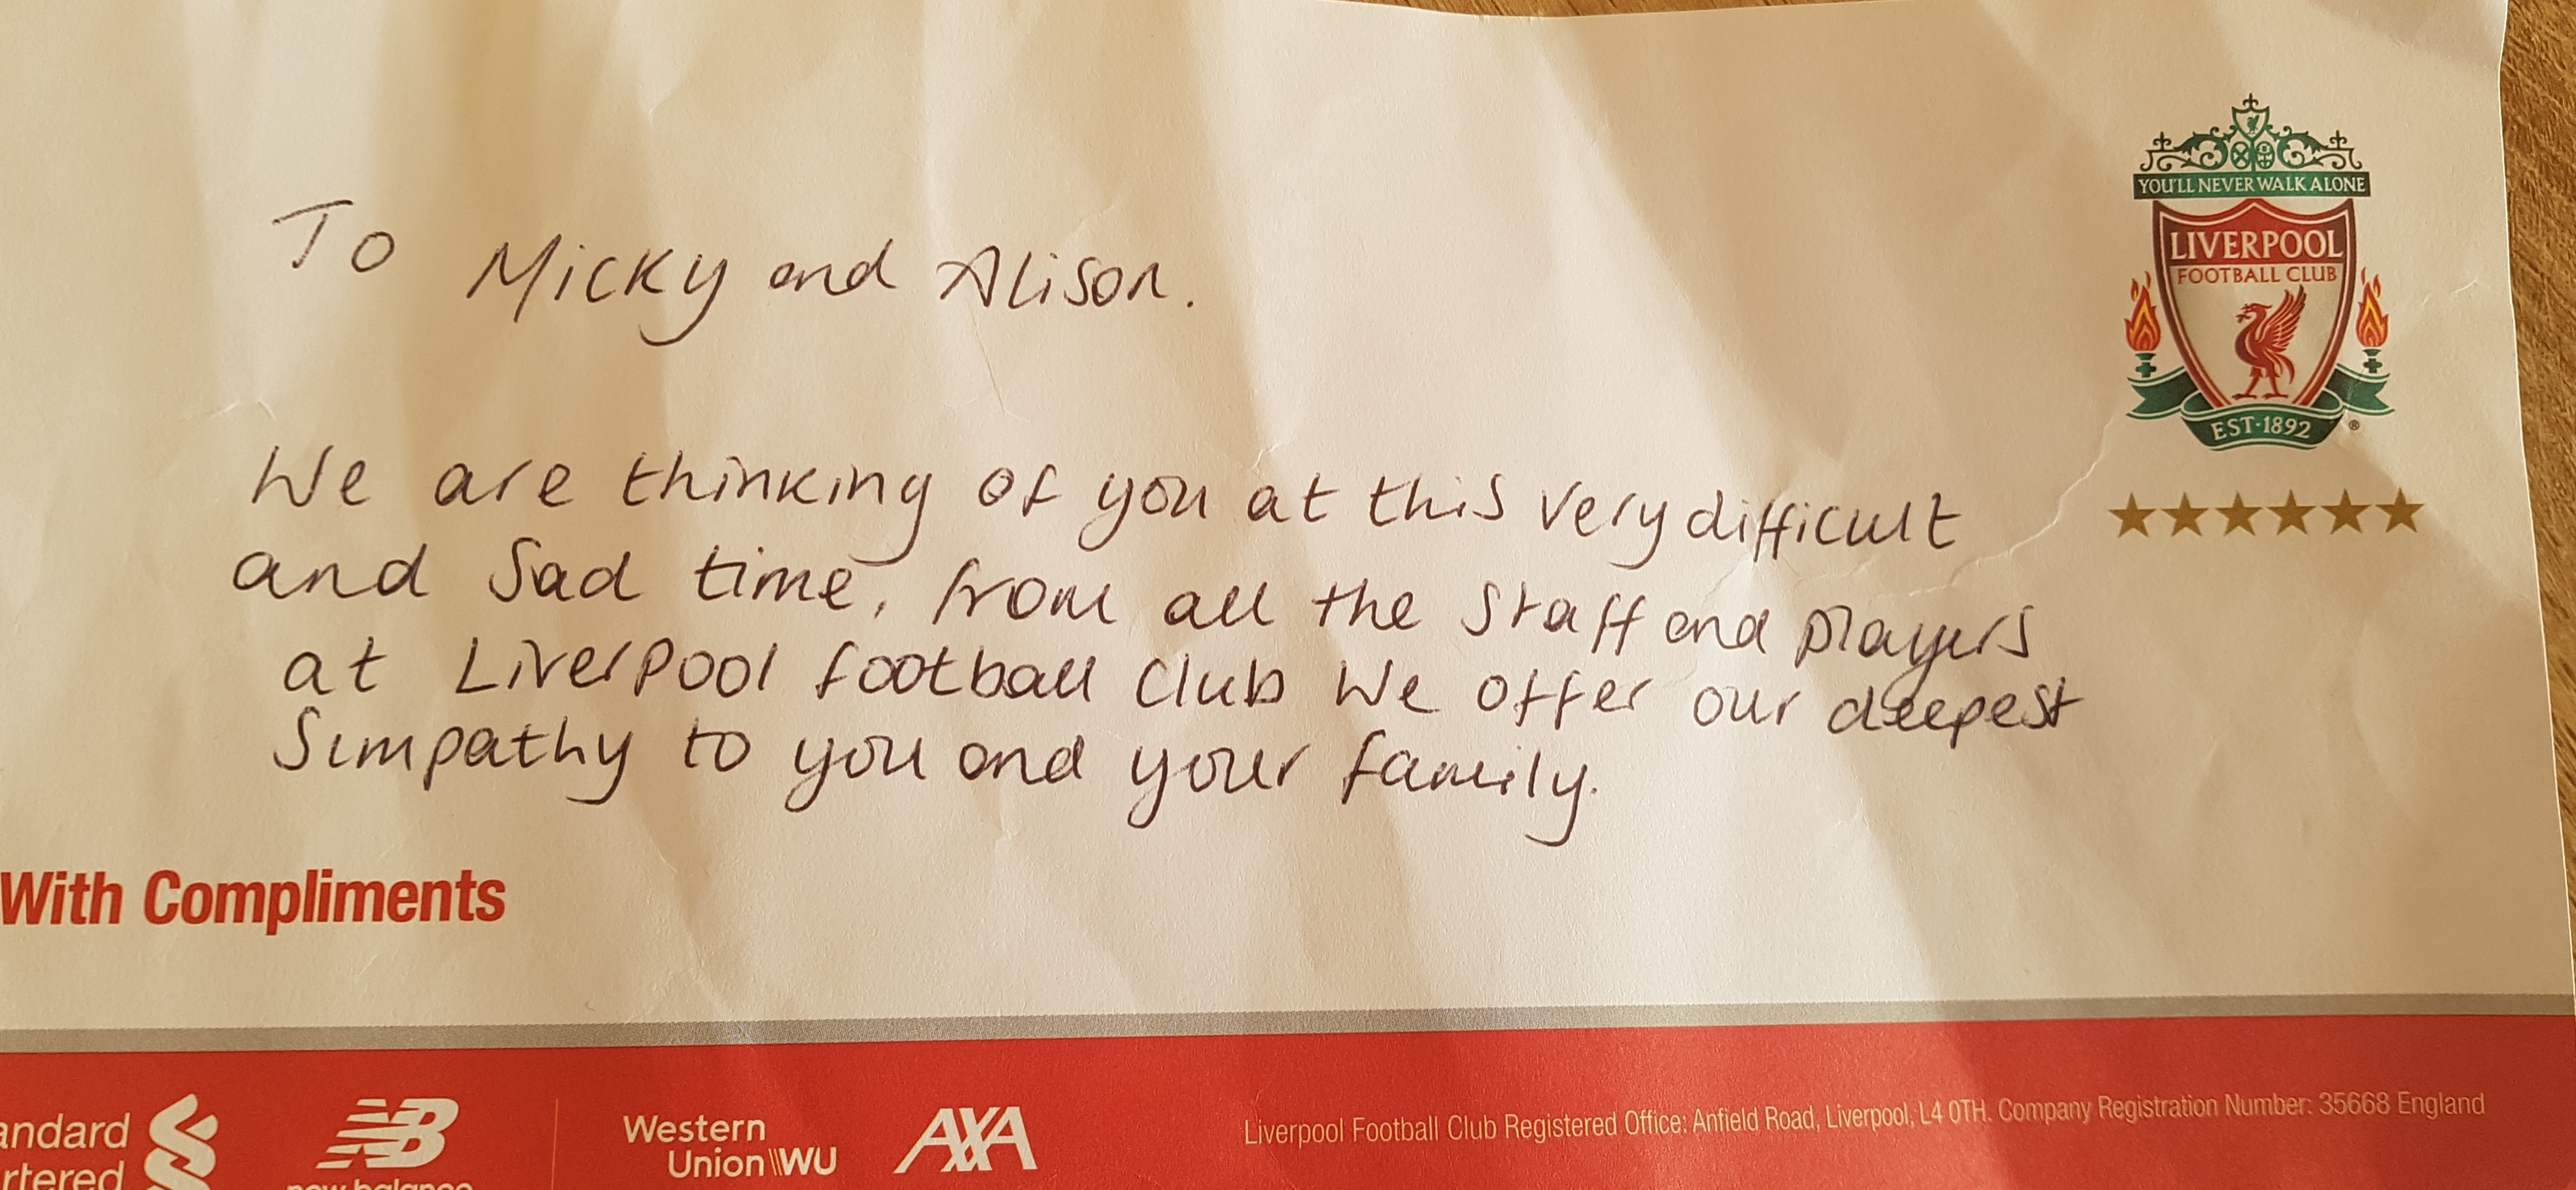 YOU'LL NEVER WALK ALONE
LIVERPOOL
FOOTBALL CLUB
EST·1892
®
To Micky and Alison.
We are thinking of you at this very difficult
and Sad time, from all the Staff and players
at Liverpool football Club We offer our deepest
Simpathy to you and your family.
With Compliments
andard
rtered
NB
new balance
Western
Union \\WU
AXA
Liverpool Football Club Registered Office: Anfield Road, Liverpool, L4 0TH. Company Registration Number: 35668 England